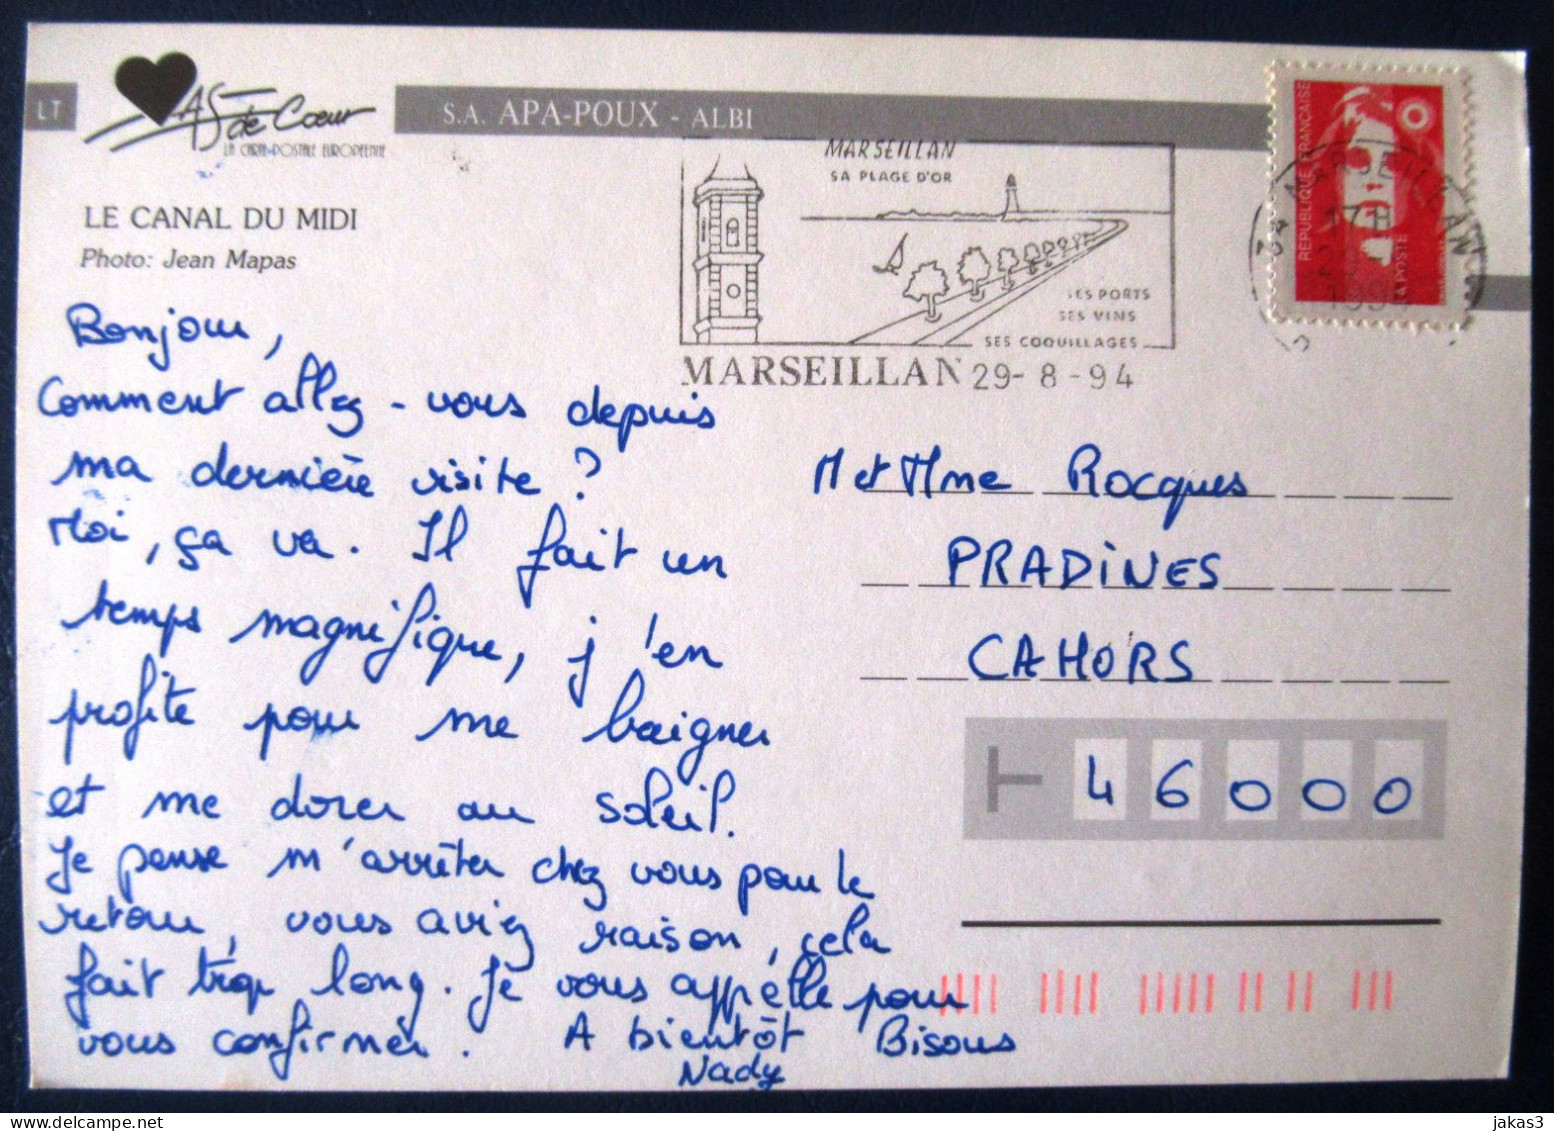 LT
AS de Cœur
LA CARTE-POSTALE EUROPEENNE
S.A. APA-POUX - ALBI
LE CANAL DU MIDI
Photo: Jean Mapas
MARSEILLAN
SA PLAGE D'OR
SES PORTS
SES VINS
SES COQUILLAGES
MARSEILLAN 29-8-94
REPUBLIQUE FRANÇAISE
LA POSTE
34 MARSEILLAN
17H
Bonjour,
Comment allez-vous depuis
ma dernière visite ?
Moi, ça va. Il fait un
temps magnifique, j'en
profite pour me baigner
et me dorer au soleil.
Je pense m'arrêter chez vous pour le
retour, vous aviez raison, cela
fait trop long. Je vous appelle pour
vous confirmer. A bientôt Bisous
Nady
M et Mme Rocques
PRADINES
CAHORS
46000
delcampe.net
jakas3